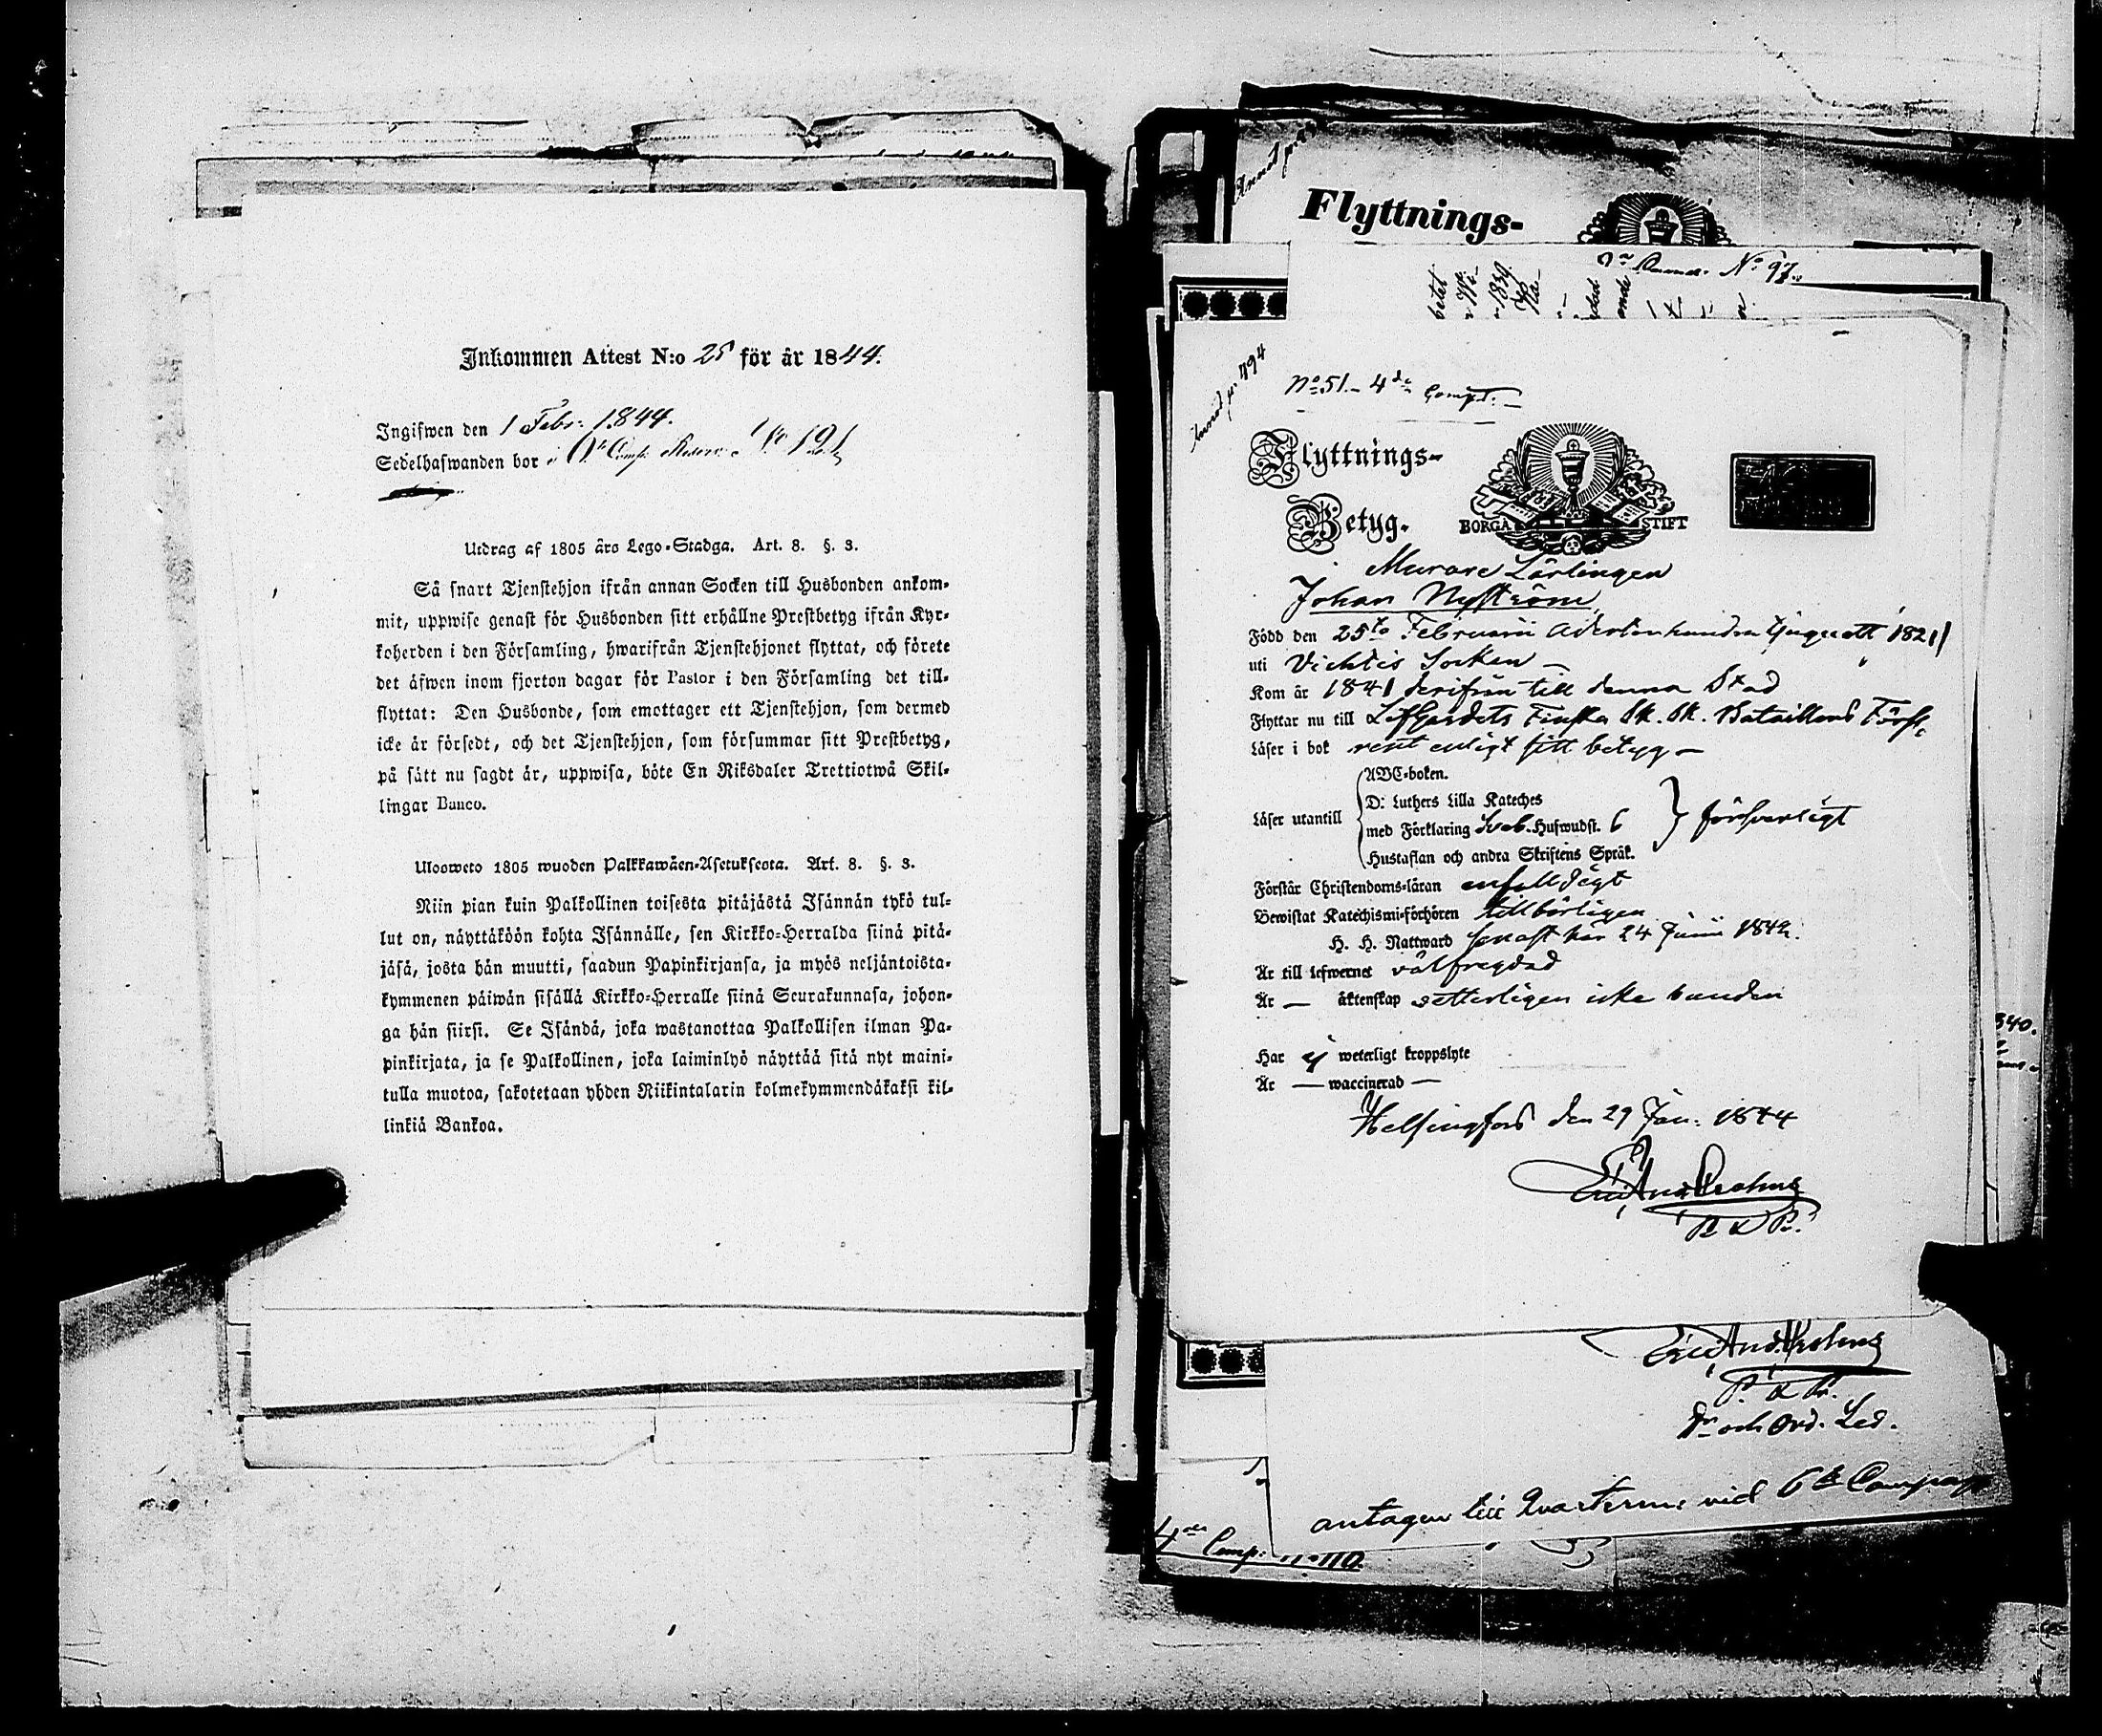 Inkommen Attest N:o 25 för år 1844.
Ingifwen den 1 Febr: 1844.
Sedelhafwanden bor i Comp. No 121
Utdrag af 1805 års Lego-Stadga. Art. 8. §. 3.
Så snart Tjenstehjon ifrån annan Socken till Husbonden ankom-
mit, uppwise genast för Husbonden sitt erhållne Prestbetyg ifrån Kyr-
koherden i den Församling, hwarifrån Tjenstehjonet flyttat, och förete
det äfwen inom fjorton dagar för Pastor i den Församling det till-
flyttat: Den Husbonde, som emottager ett Tjenstehjon, som dermed
icke är försedt, och det Tjenstehjon, som försummar sitt Prestbetyg,
på sätt nu sagdt är, uppwisa, böte En Riksdaler Trettiotwå Skil-
lingar Banco.
Uloosweto 1805 wuoden Palkkawäen-Asetuksesta. Art. 8. §. 3.
Niin pian kuin Palkollinen toisesta pitäjästä Isännän tykö tul-
lut on, näyttäköön kohta Isännälle, sen Kirkko-Herralda siinä pitä-
jäsä, josta hän muutti, saadun Papinkirjansa, ja myös neljäntoista-
kymmenen päiwän sisällä Kirkko-Herralle siinä Seurakunnasa, johon-
ga hän siirsi. Se Isändä, joka wastanottaa Palkollisen ilman Pa-
pinkirjata, ja se Palkollinen, joka laiminlyö näyttää sitä nyt maini-
tulla muotoa, sakotetaan yhden Riikintalarin kolmekymmendäkaksi kil-
linkiä Bankoa.
Flyttnings-
No 97.
1839
No 51. 4de Comp:
Flyttnings-
Betyg.
BORGÅ STIFT
Murare Lärlingen
Johan Nyström
Född den 25te Februarii Adertonhundra tjuguett 1821
uti Vichtis Socken
Kom år 1841 derifrån till denna Stad
Flyttar nu till LifGardets Finska Sk. Sk. Bataillons Förs.
Läser i bok rent enligt sitt betyg
Läser utantill
ABC-boken.
D: Luthers Lilla Kateches
med Förklaring Sveb. Hufwudst. 6
Hustaflan och andra Skriftens Språk.
försvarligt
Förstår Christendoms-läran enfaldigt
Bewistat Katechismi-förhören tillbörligen
H. H. Nattward senast här 24 Junii 1842.
Är till lefwernet välfrejdad
Är — äktenskap vetterligen icke bunden
Har ej weterligt kroppslyte
Är — waccinerad —
Helsingfors den 29 Jan: 1844
340.
och Ord. Led.
antagen till vid 6te Compag
4de Comp: No 110.